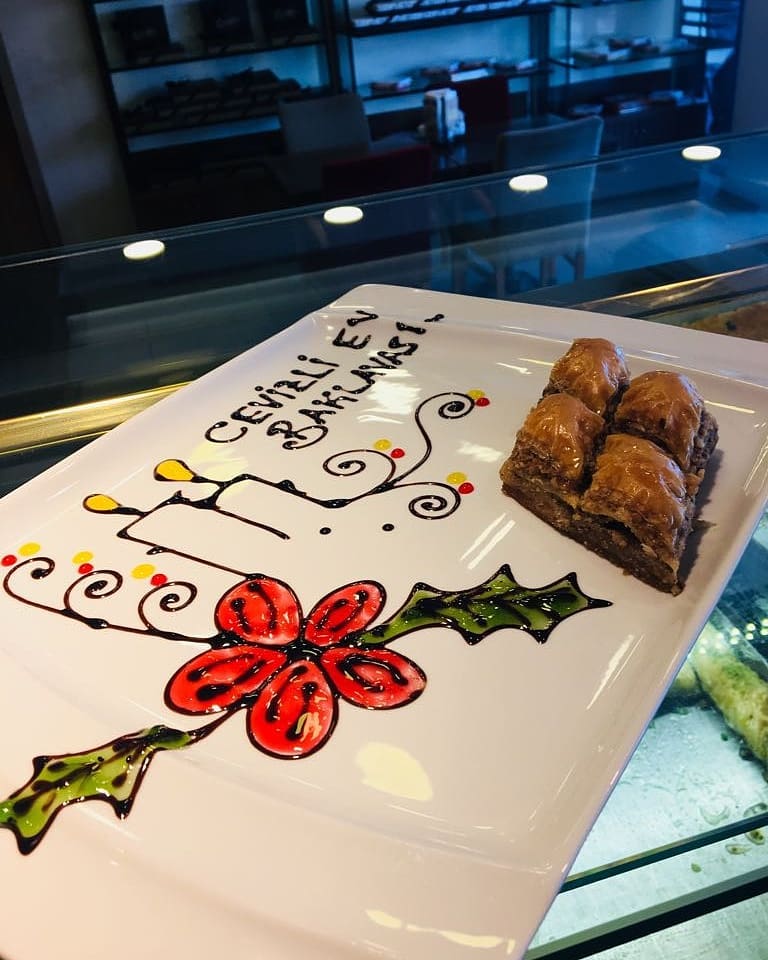 CEVİZLİ EV
BAKLAVASI